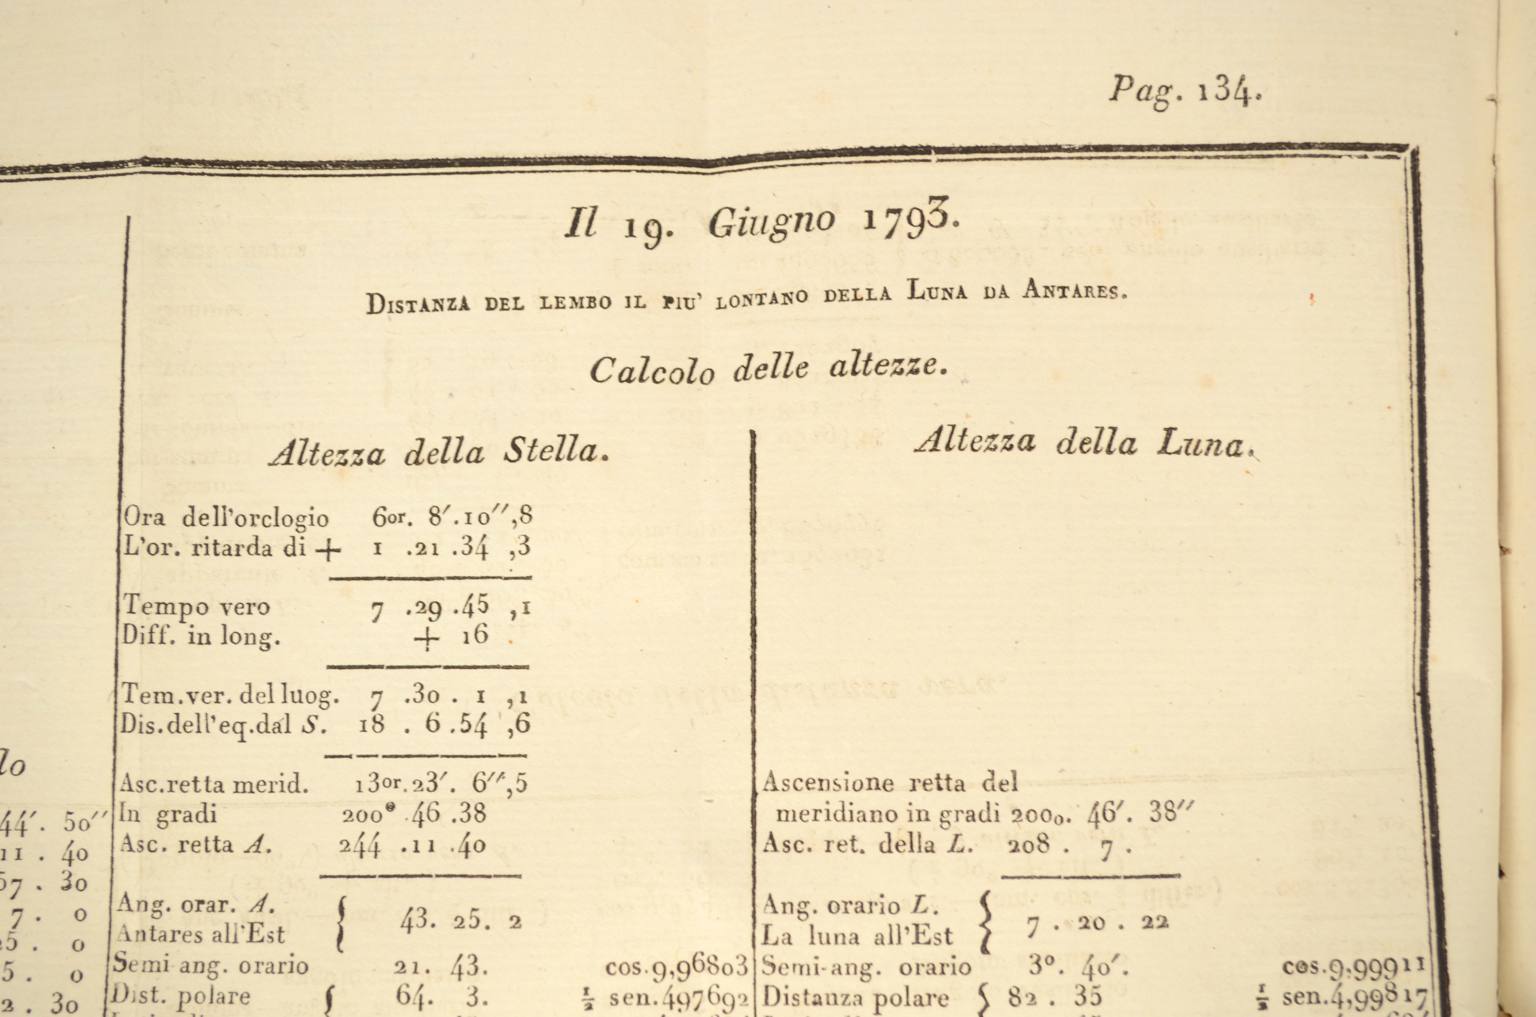 Pag. 134.
Il 19. Giugno 1793.
Distanza del lembo il piu' lontano della Luna da Antares.
Calcolo delle altezze.
Altezza della Stella.
Ora dell'orclogio 6or. 8′.10″,8
L'or. ritarda di + 1 .21 .34 ,3
Tempo vero 7 .29 .45 ,1
Diff. in long. + 16
Tem.ver. del luog. 7 .30 . 1 ,1
Dis.dell'eq.dal S. 18 . 6 .54 ,6
Asc.retta merid. 13or.23′. 6″,5
In gradi 200° .46 .38
Asc. retta A. 244 .11 .40
Ang. orar. A.
Antares all'Est } 43. 25. 2
Semi-ang. orario 21. 43. cos.9,96803
Dist. polare { 64. 3. ½ sen.497692
Altezza della Luna.
Ascensione retta del
meridiano in gradi 200o. 46′. 38″
Asc. ret. della L. 208 . 7 .
Ang. orario L.
La luna all'Est { 7 . 20 . 22
Semi-ang. orario 3°. 40′. cos.9.99911
Distanza polare { 82 . 35 ½ sen.4,99817
lo
44′. 50″
11 . 40
57 . 30
7 . 0
5 . 0
5 . 0
2 . 30